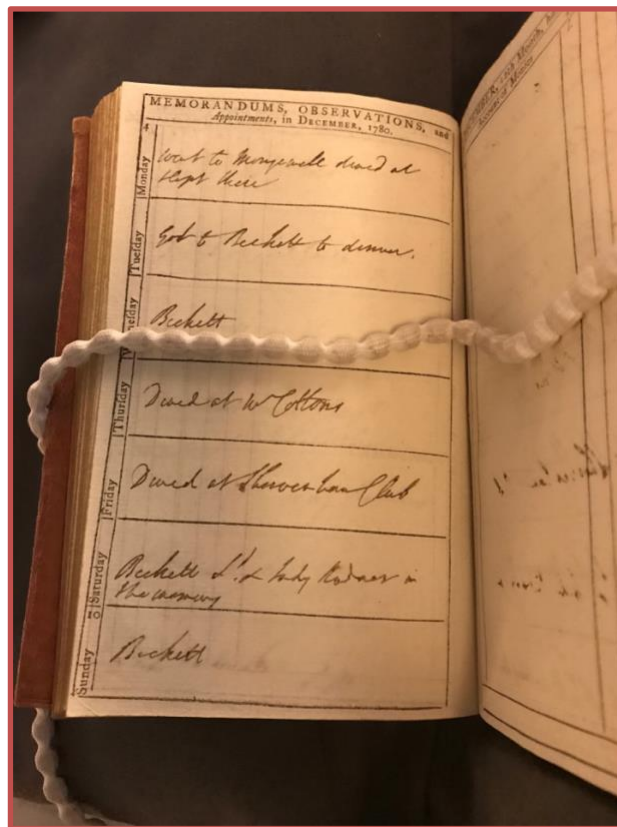 MEMORANDUMS, OBSERVATIONS, and
Appointments, in DECEMBER, 1780.
4
Monday
Went to Mongewell dined &
slept there
Tuesday
Got to Beckett to dinner.
nesday
Beckett
Thursday
Dined at Mr Cottons
Friday
Dined at Club
Saturday
Beckett Ld. & Lady Radnor in
the morning
10
Sunday
Beckett